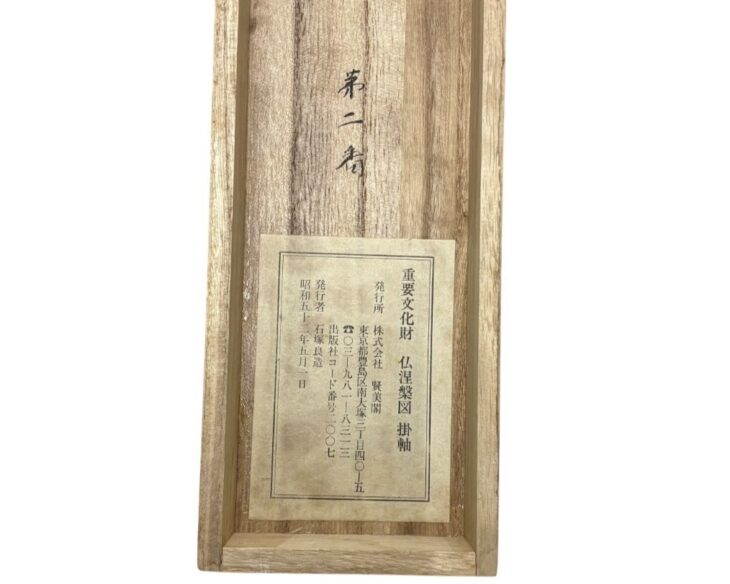 第二番
重要文化財 仏涅槃図 掛軸
発行所 株式会社 賢美閣
東京都豊島区南大塚三丁目四〇―五
☎〇三―九八一―八三一三
出版社コード番号二〇〇七
発行者 石塚良造
昭和五十二年五月一日